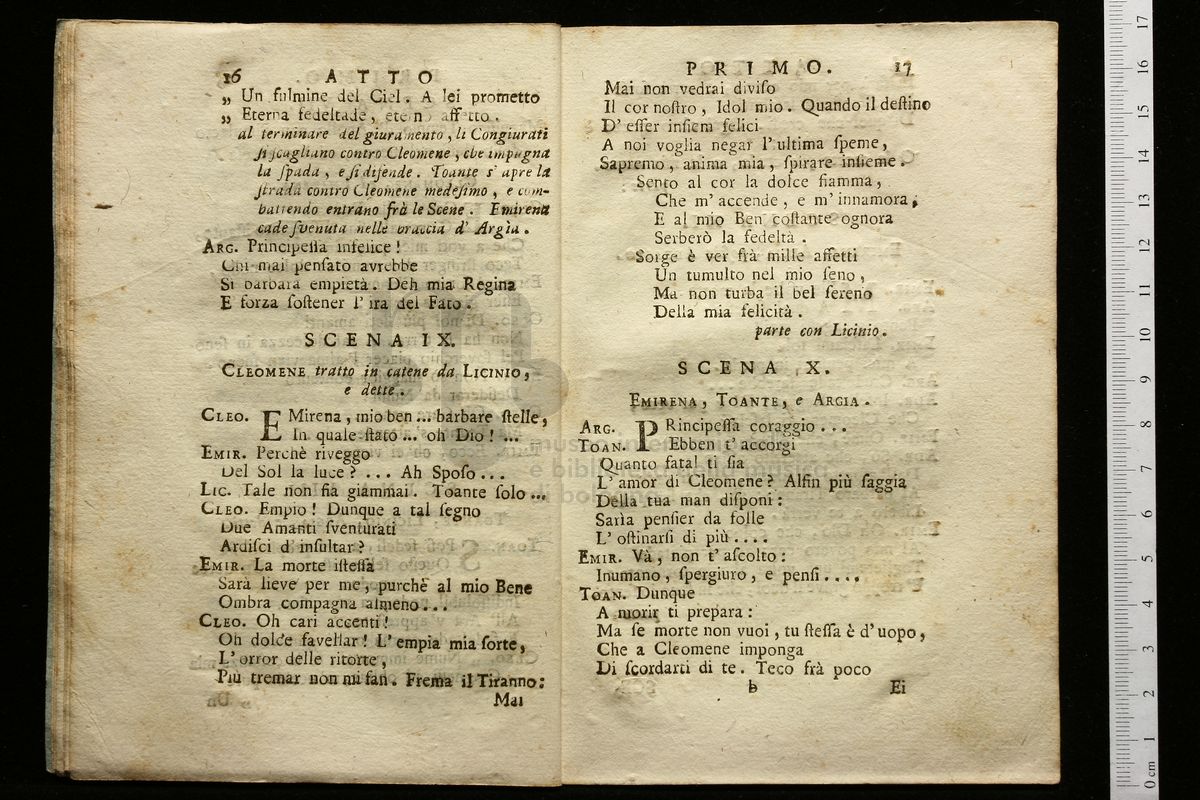 16 ATTO
„ Un fulmine del Ciel. A lei prometto
„ Eterna fedeltade, eterno affetto.
al terminare del giuramento, li Congiurati
si scagliano contro Cleomene, che impugna
la spada, e si difende. Toante s' apre la
strada contro Cleomene medesimo, e com-
battendo entrano frà le Scene. Emirena
cade svenuta nelle braccia d' Argìa.
ARG. Principessa infelice!
Chi mai pensato avrebbe
Sì barbara empietà. Deh mia Regina
E forza sostener l' ira del Fato.
SCENA IX.
CLEOMENE tratto in catene da LICINIO,
e dette.
CLEO. EMirena, mio ben ... barbare stelle,
In quale stato ... oh Dio! ...
EMIR. Perchè riveggo
Del Sol la luce? ... Ah Sposo ...
LIC. Tale non fia giammai. Toante solo ...
CLEO. Empio! Dunque a tal segno
Due Amanti sventurati
Ardisci d' insultar?
EMIR. La morte istessa
Sarà lieve per me, purchè al mio Bene
Ombra compagna almeno...
CLEO. Oh cari accenti!
Oh dolce favellar! L' empia mia sorte,
L' orror delle ritorte,
Più tremar non mi fan. Frema il Tiranno:
Mai
PRIMO. 17
Mai non vedrai diviso
Il cor nostro, Idol mio. Quando il destino
D' esser insiem felici
A noi voglia negar l' ultima speme,
Sapremo, anima mia, spirare insieme.
Sento al cor la dolce fiamma,
Che m' accende, e m' innamora,
E al mio Ben costante ognora
Serberò la fedeltà.
Sorge è ver frà mille affetti
Un tumulto nel mio seno,
Ma non turba il bel sereno
Della mia felicità.
parte con Licinio.
SCENA X.
EMIRENA, TOANTE, e ARGIA.
ARG. PRincipessa coraggio ...
TOAN. Ebben t' accorgi
Quanto fatal ti sia
L' amor di Cleomene? Alfin più saggia
Della tua man disponi:
Saria pensier da folle
L' ostinarsi di più ....
EMIR. Và, non t' ascolto:
Inumano, spergiuro, e pensi ....
TOAN. Dunque
A morir ti prepara:
Ma se morte non vuoi, tu stessa è d' uopo,
Che a Cleomene imponga
Di scordarti di te. Teco frà poco
b Ei
museo internazionale
e biblioteca della musica
di bologna
0 cm 1 2 3 4 5 6 7 8 9 10 11 12 13 14 15 16 17